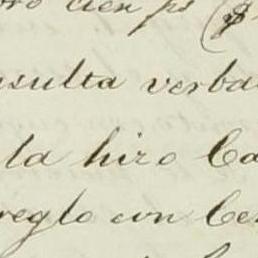 oro cien ps ($
nsulta verba
la hizo Ca
reglo con Ce